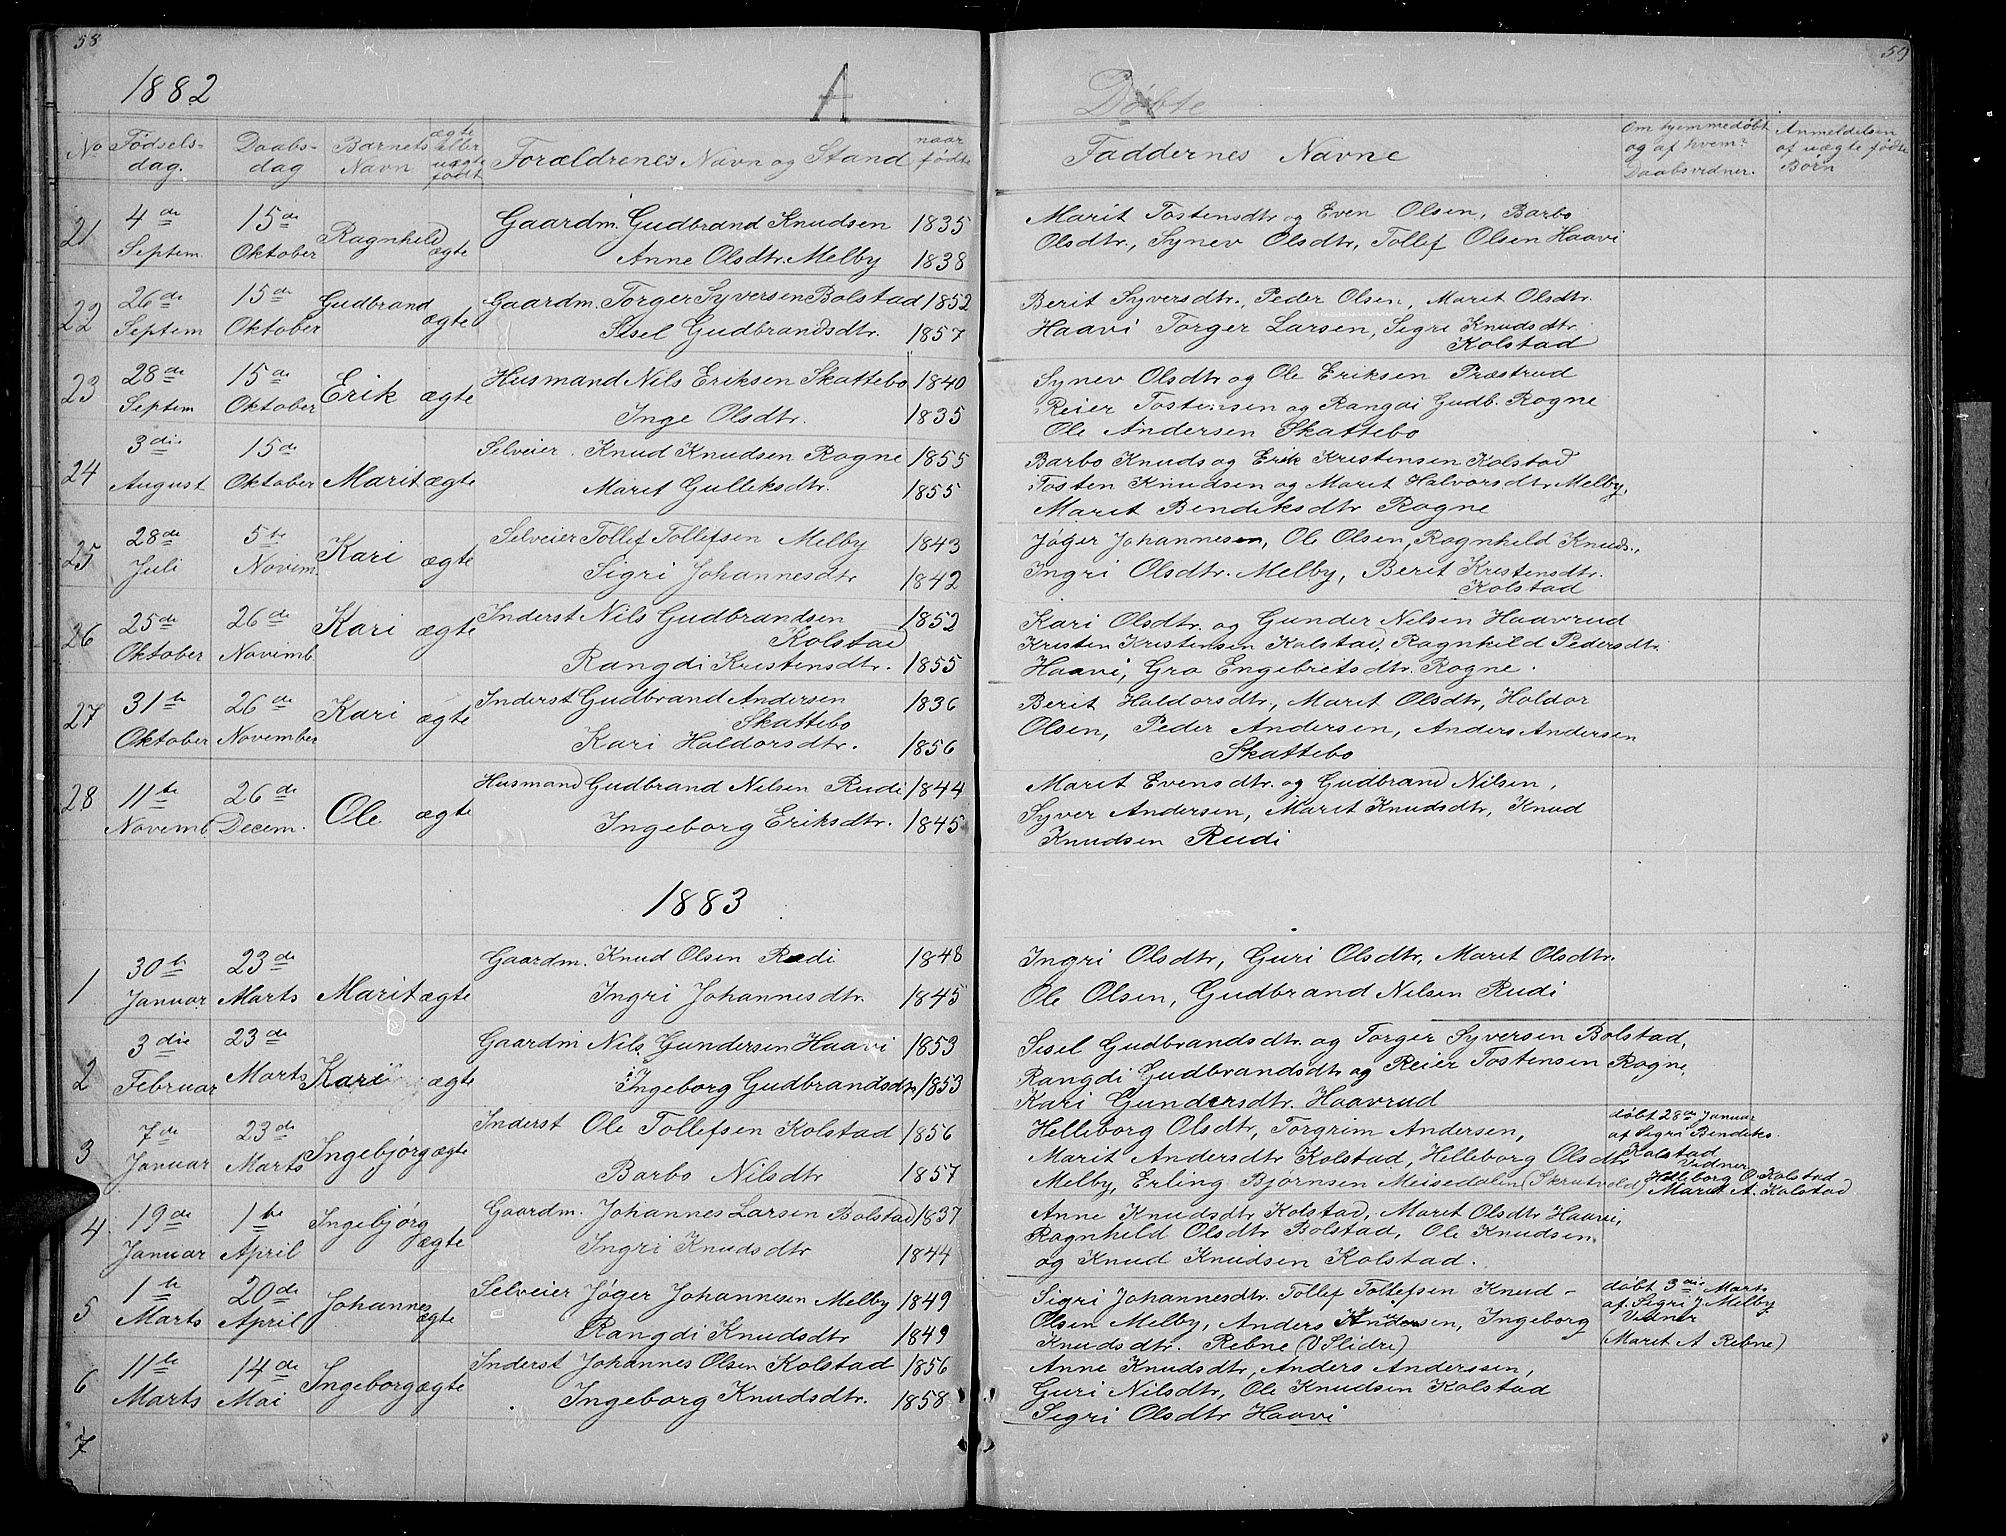 58
1882
A
No Fødsels- dag. Daabs- dag Barnets Navn ægte eller uægte født Forældrenes Navn og Stand naar fødte
21 4de Septem 15de Oktober Ragnhild ægte Gaardm. Gudbrand Knudsen 1835
Anne Olsdtr. Melby 1838
22 26de Septem 15de Oktober Gudbrand ægte Gaardm. Torger Syversen Bolstad 1852
Sisel Gudbrandsdtr. 1857
23 28de Septem 15de Oktober Erik ægte Husmand Nils Eriksen Skattebo 1840
Inge Olsdtr. 1835
24 3die August 15de Oktober Marit ægte Selveier Knud Knudsen Rogne 1855
Marit Gulleksdtr. 1855
25 28de Juli 5te Novem. Kari ægte Selveier Tollef Tollefsen Melby 1843
Sigri Johannesdtr 1842
26 25de Oktober 26de Novemb. Kari ægte Inderst Nils Gudbrandsen 1852
Kolstad
Rangdi Kristensdtr. 1855
27 31te Oktober 26de November Kari ægte Inderst Gudbrand Andersen 1836
Skattebo
Kari Haldorsdtr. 1856
28 11te Novemb. 26de Decem. Ole ægte Husmand Gudbrand Nilsen Rudi 1844
Ingeborg Eriksdtr. 1845
1883
1 30te Januar 23de Marts Marit ægte Gaardm. Knud Olsen Rudi 1848
Ingri Johannesdtr. 1845
2 3die Februar 23de Marts Kari ægte Gaardm Nils Gundersen Haavi 1853
Ingeborg Gudbrandsdtr 1853
3 7de Januar 23de Marts Ingebjørg ægte Inderst Ole Tollefsen Kolstad 1856
Barbo Nilsdtr 1857
4 19de Januar 1te April Ingebjørg ægte Gaardm. Johannes Larsen Bolstad 1837
Ingri Knudsdtr 1844
5 1te Marts 20de April Johannes ægte Selveier Jøger Johannesen Melby 1849
Rangdi Knudsdtr 1849
6 11te Marts 14de Mai Ingeborg ægte Inderst Johannes Olsen Kolstad 1856
Ingeborg Knudsdtr. 1858
7
59
Døbte
Faddernes Navne Om hjemmedøbt og af hvem? Daabsvidner. Anmeldelsen af uægte fødte Børn
Marit Tostensdtr og Even Olsen, Barbo
Olsdtr., Synev Olsdtr, Tollef Olsen Haavi
Berit Syversdtr., Peder Olsen, Marit Olsdtr.
Haavi Torger Larsen, Sigri Knudsdtr.
Kolstad
Synev Olsdtr og Ole Eriksen Præstrud
Reier Tostensen og Rangdi Gudb. Rogne
Ole Andersen Skattebo
Barbo Knuds og Erik Kristensen Kolstad
Tosten Knudsen og Marit Halvorsdtr Melby,
Marit Bendiksdtr Rogne
Jøger Johannesen, Ole Olsen, Ragnhild Knuds.,
Ingri Olsdtr. Melby, Berit Kristensdtr.
Kolstad
Kari Olsdtr. og Gunder Nilsen Haavrud
Kristen Kristensen Kolstad, Ragnhild Pedersdtr.
Haavi, Gro Engebretsdtr. Rogne.
Berit Haldorsdtr, Marit Olsdtr, Haldor
Olsen, Peder Andersen, Anders Andersen
Skattebo
Marit Evensdtr. og Gudbrand Nilsen,
Syver Andersen, Marit Knudsdtr, Knud
Knudsen Rudi
Ingri Olsdtr, Guri Olsdtr, Marit Olsdtr.
Ole Olsen, Gudbrand Nilsen Rudi
Sisel Gudbrandsdtr. og Torger Syversen Bolstad,
Rangdi Gudbrandsdtr og Reier Tostensen Rogne,
Kari Gundersdtr. Haavrud
Helleborg Olsdtr, Torgrim Andersen,
Marit Andersdtr Kolstad, Helleborg Olsdtr
Melby, Erling Bjørnsen Meisedalen (Skrutvold)
døbt 28de Januar
af Sigri Bendiks.
Kolstad
Vidner
Helleborg O. Kolstad
Marit A. Kolstad
Anne Knudsdtr Kolstad, Marit Olsdtr Haavi,
Ragnhild Olsdtr Bolstad, Ole Knudsen
og Knud Knudsen Kolstad.
Sigri Johannesdtr. Tollef Tollefsen Knud-
Olsen Melby, Anders Andersen, Ingeborg
Knudsdtr. Rebne (V Slidre)
døbt 3die Marts
af. Sigri J. Melby
Vidner
(Marit A Rebne)
Anne Knudsdtr, Anders Anderssen,
Guri Nilsdtr, Ole Knudsen Kolstad
Sigri Olsdtr Haavi